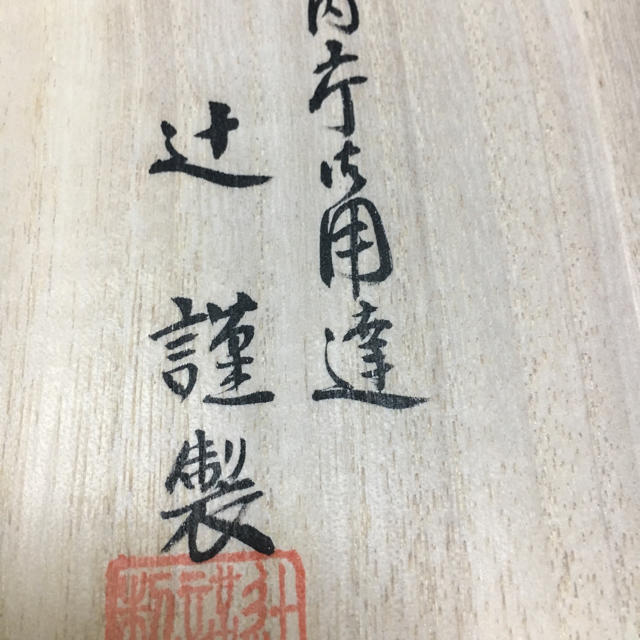 内庁御用達
辻謹製